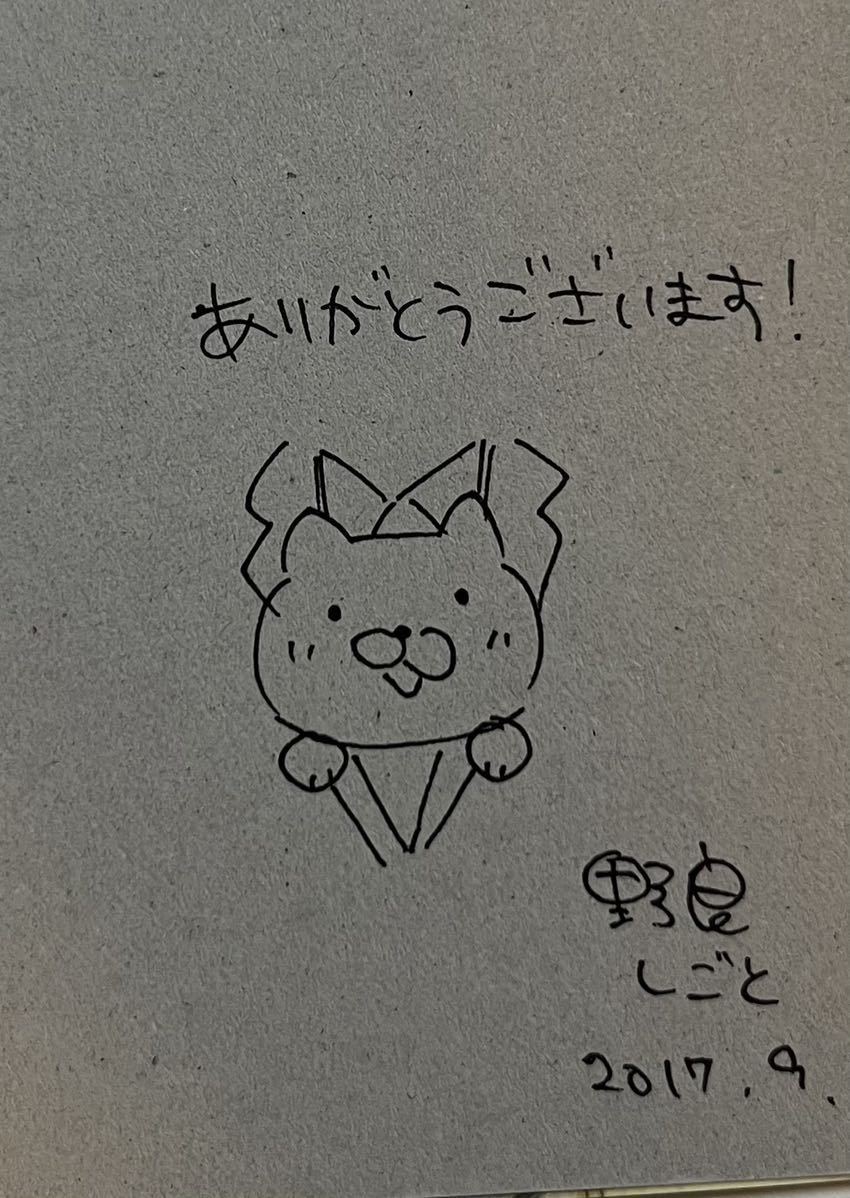 ありがとうございます!
野良
しごと
2017.9.